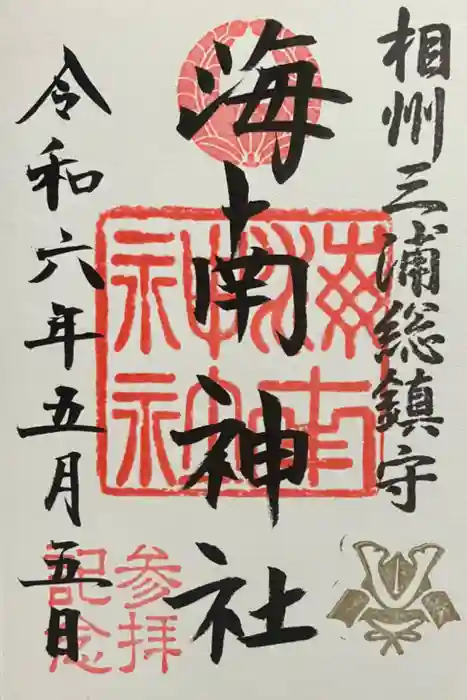 相州三浦総鎮守
海南神社
令和六年五月五日
海南
神社
参拝
記念